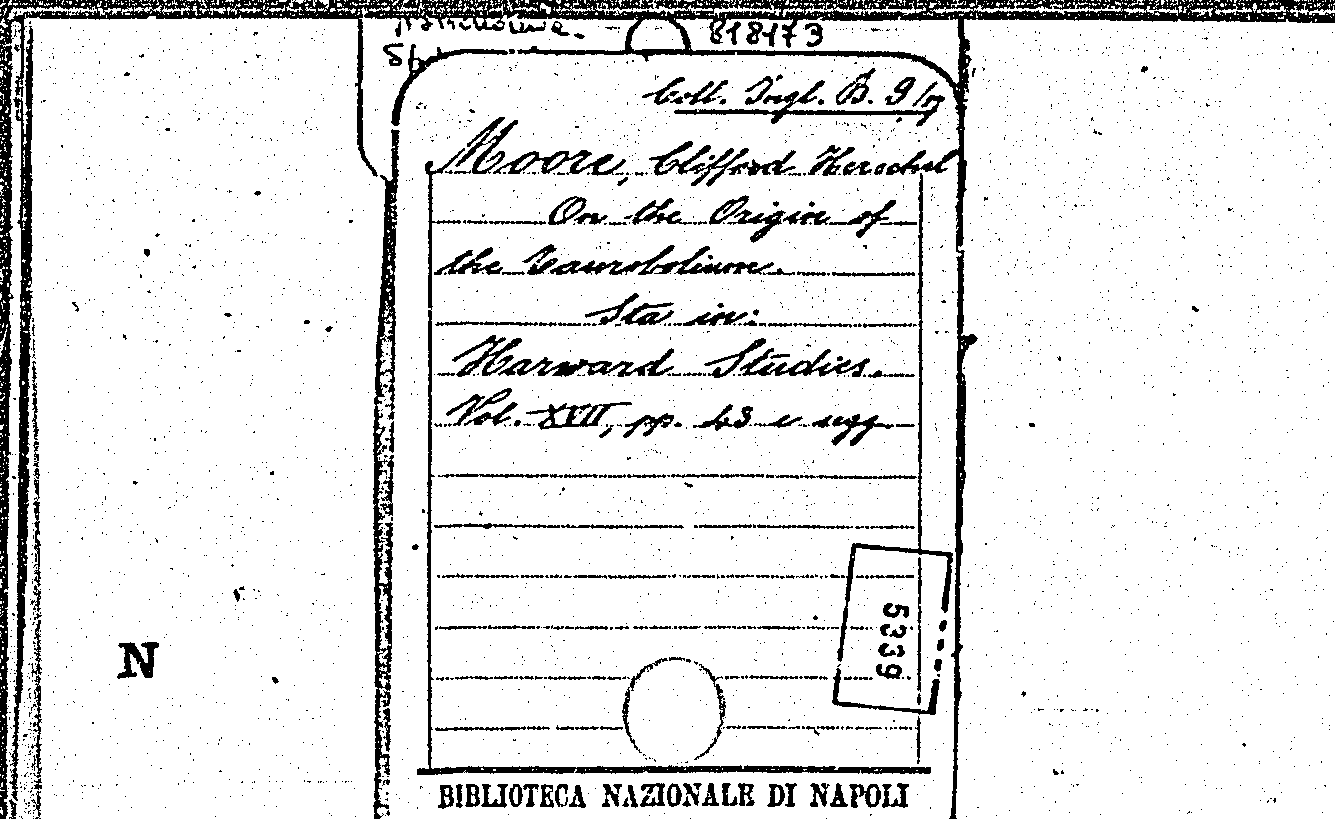 818173
Coll. Ingl. B. 9/
Moore, Clifford Herschel
On the Origin of
the Taurobolium.
Sta in:
Harward Studies.
Vol. XVII, pp. 43 e segg.
5339
N
BIBLIOTECA NAZIONALE DI NAPOLI